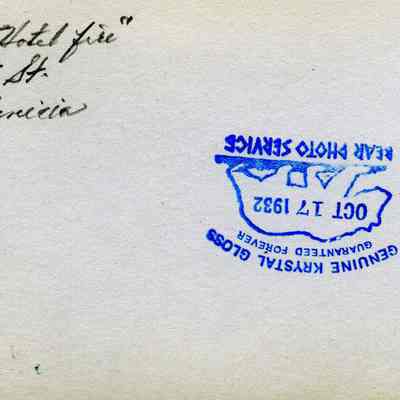 Hotel fire"
St.
enicia
GENUINE KRYSTAL GLOSS
GUARANTEED FOREVER
OCT 17 1932
BEAR PHOTO SERVICE